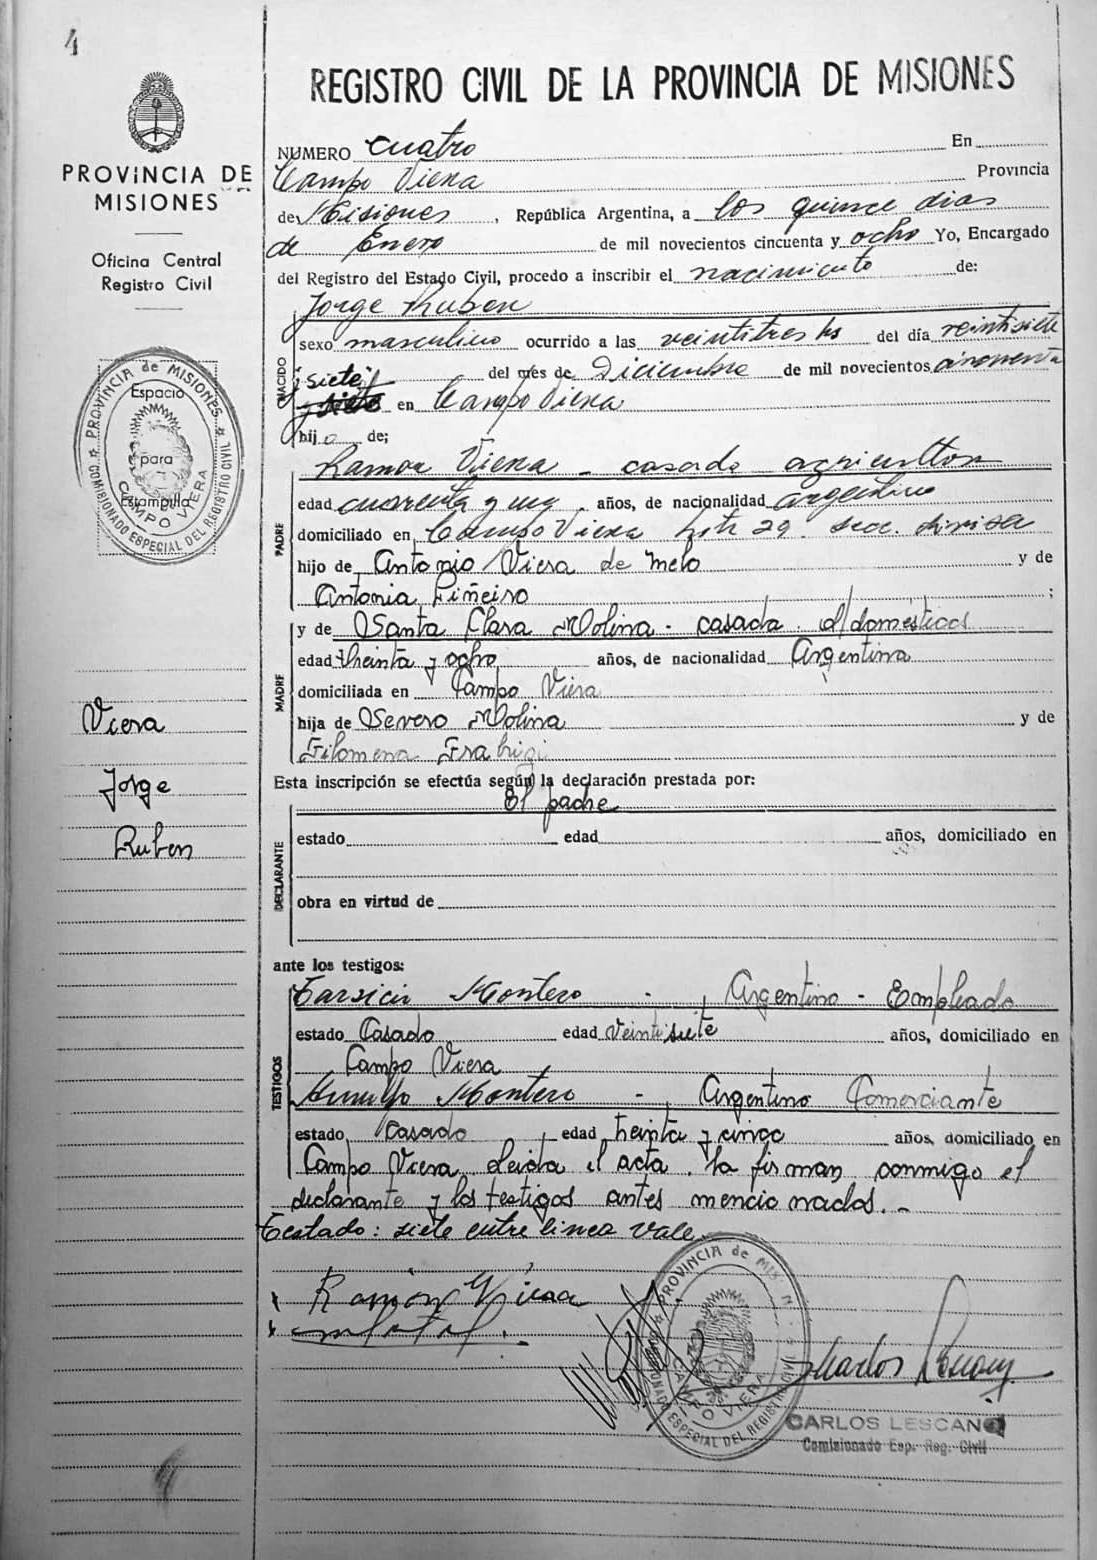 4
REGISTRO CIVIL DE LA PROVINCIA DE MISIONES
PROVINCIA DE
MISIONES
Oficina Central
Registro Civil
PROVINCIA de MISIONES
COMISIONADO ESPECIAL DEL REGISTRO CIVIL
CAMPO VIERA
Espacio
para
Estampilla
Viera
Jorge
Ruben
NUMERO cuatro En
Campo Viera Provincia
de Misiones, República Argentina, a los quince dias
de Enero de mil novecientos cincuenta y ocho Yo, Encargado
del Registro del Estado Civil, procedo a inscribir el nacimiento de:
Jorge Ruben
NACIDO
sexo masculino ocurrido a las veintitres hs del día veintisiete
y siete del mes de Diciembre de mil novecientos cincuenta
y siete en Campo Viera
hijo de;
PADRE
Ramon Viera - casado agricultor
edad cuarenta y un años, de nacionalidad argentino
domiciliado en Campo Viera lote 29 sec. divisa
hijo de Antonio Viera de Melo y de
Antonia Piñeiro ;
MADRE
y de Santa Clara Molina - casada q/domesticos
edad treinta y ocho años, de nacionalidad Argentina
domiciliada en Campo Viera
hija de Severo Molina y de
Filomena
Esta inscripción se efectúa según la declaración prestada por:
El padre
DECLARANTE
estado edad años, domiciliado en
obra en virtud de
ante los testigos:
TESTIGOS
Tarsicio Montero - Argentino - Empleado
estado Casado edad veintisiete años, domiciliado en
Campo Viera
Arnulfo Montero - Argentino Comerciante
estado Casado edad treinta y cinco años, domiciliado en
Campo Viera leida el acta. la firman conmigo el
declarante y los testigos antes mencionados. -
Testado: siete entre linea vale.
Ramón Viera
PROVINCIA de MISIONES
COMISIONADO ESPECIAL DEL REGISTRO CIVIL
CAMPO VIERA
Carlos Lescano
CARLOS LESCANO
Comisionado Esp. Reg. Civil